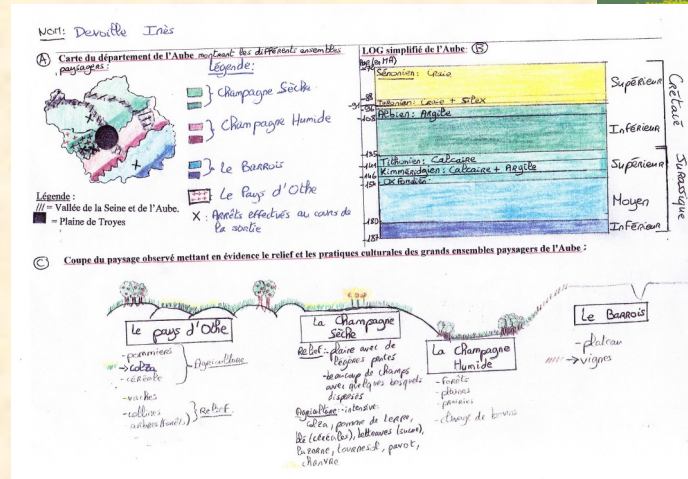 NOM: Devoille Inès
(A) Carte du département de l'Aube montrant les différents ensembles
paysagers:
Légende:
Champagne Sèche
Champagne Humide
Le Barrois
Le Pays d'Othe
X : Arrêts effectués au cours de
la sortie
Légende :
/// = Vallée de la Seine et de l'Aube.
= Plaine de Troyes
LOG simplifié de l'Aube: (B)
Sénonien: Craie
-88
-91
Turonien: Craie + Silex
-96
Albien: Argile
-108
-135
Tithonien: Calcaire
-141
Kimméridgien: Calcaire + Argile
-146
Oxfordien
-154
-180
-187
Supérieur
Inférieur
Crétacé
Supérieur
Moyen
Inférieur
Jurassique
(C) Coupe du paysage observé mettant en évidence le relief et les pratiques culturales des grands ensembles paysagers de l'Aube :
Le pays d'Othe
- pommiers
→ colza
- céréale
Agriculture
- vaches
- collines
arbres (forêt)
Relief
La Champagne
Sèche
Relief: - plaine avec de
légères pentes
- beaucoup de champs
avec quelques bosquets
dispersés
Agriculture: - intensive
colza, pomme de terre,
blé (céréales), betteraves (sucre),
luzerne, tournesol, pavot,
chanvre
La Champagne
Humide
- forêts
- plaines
- prairies
- élevage de bovins
Le Barrois
- plateau
→ vignes